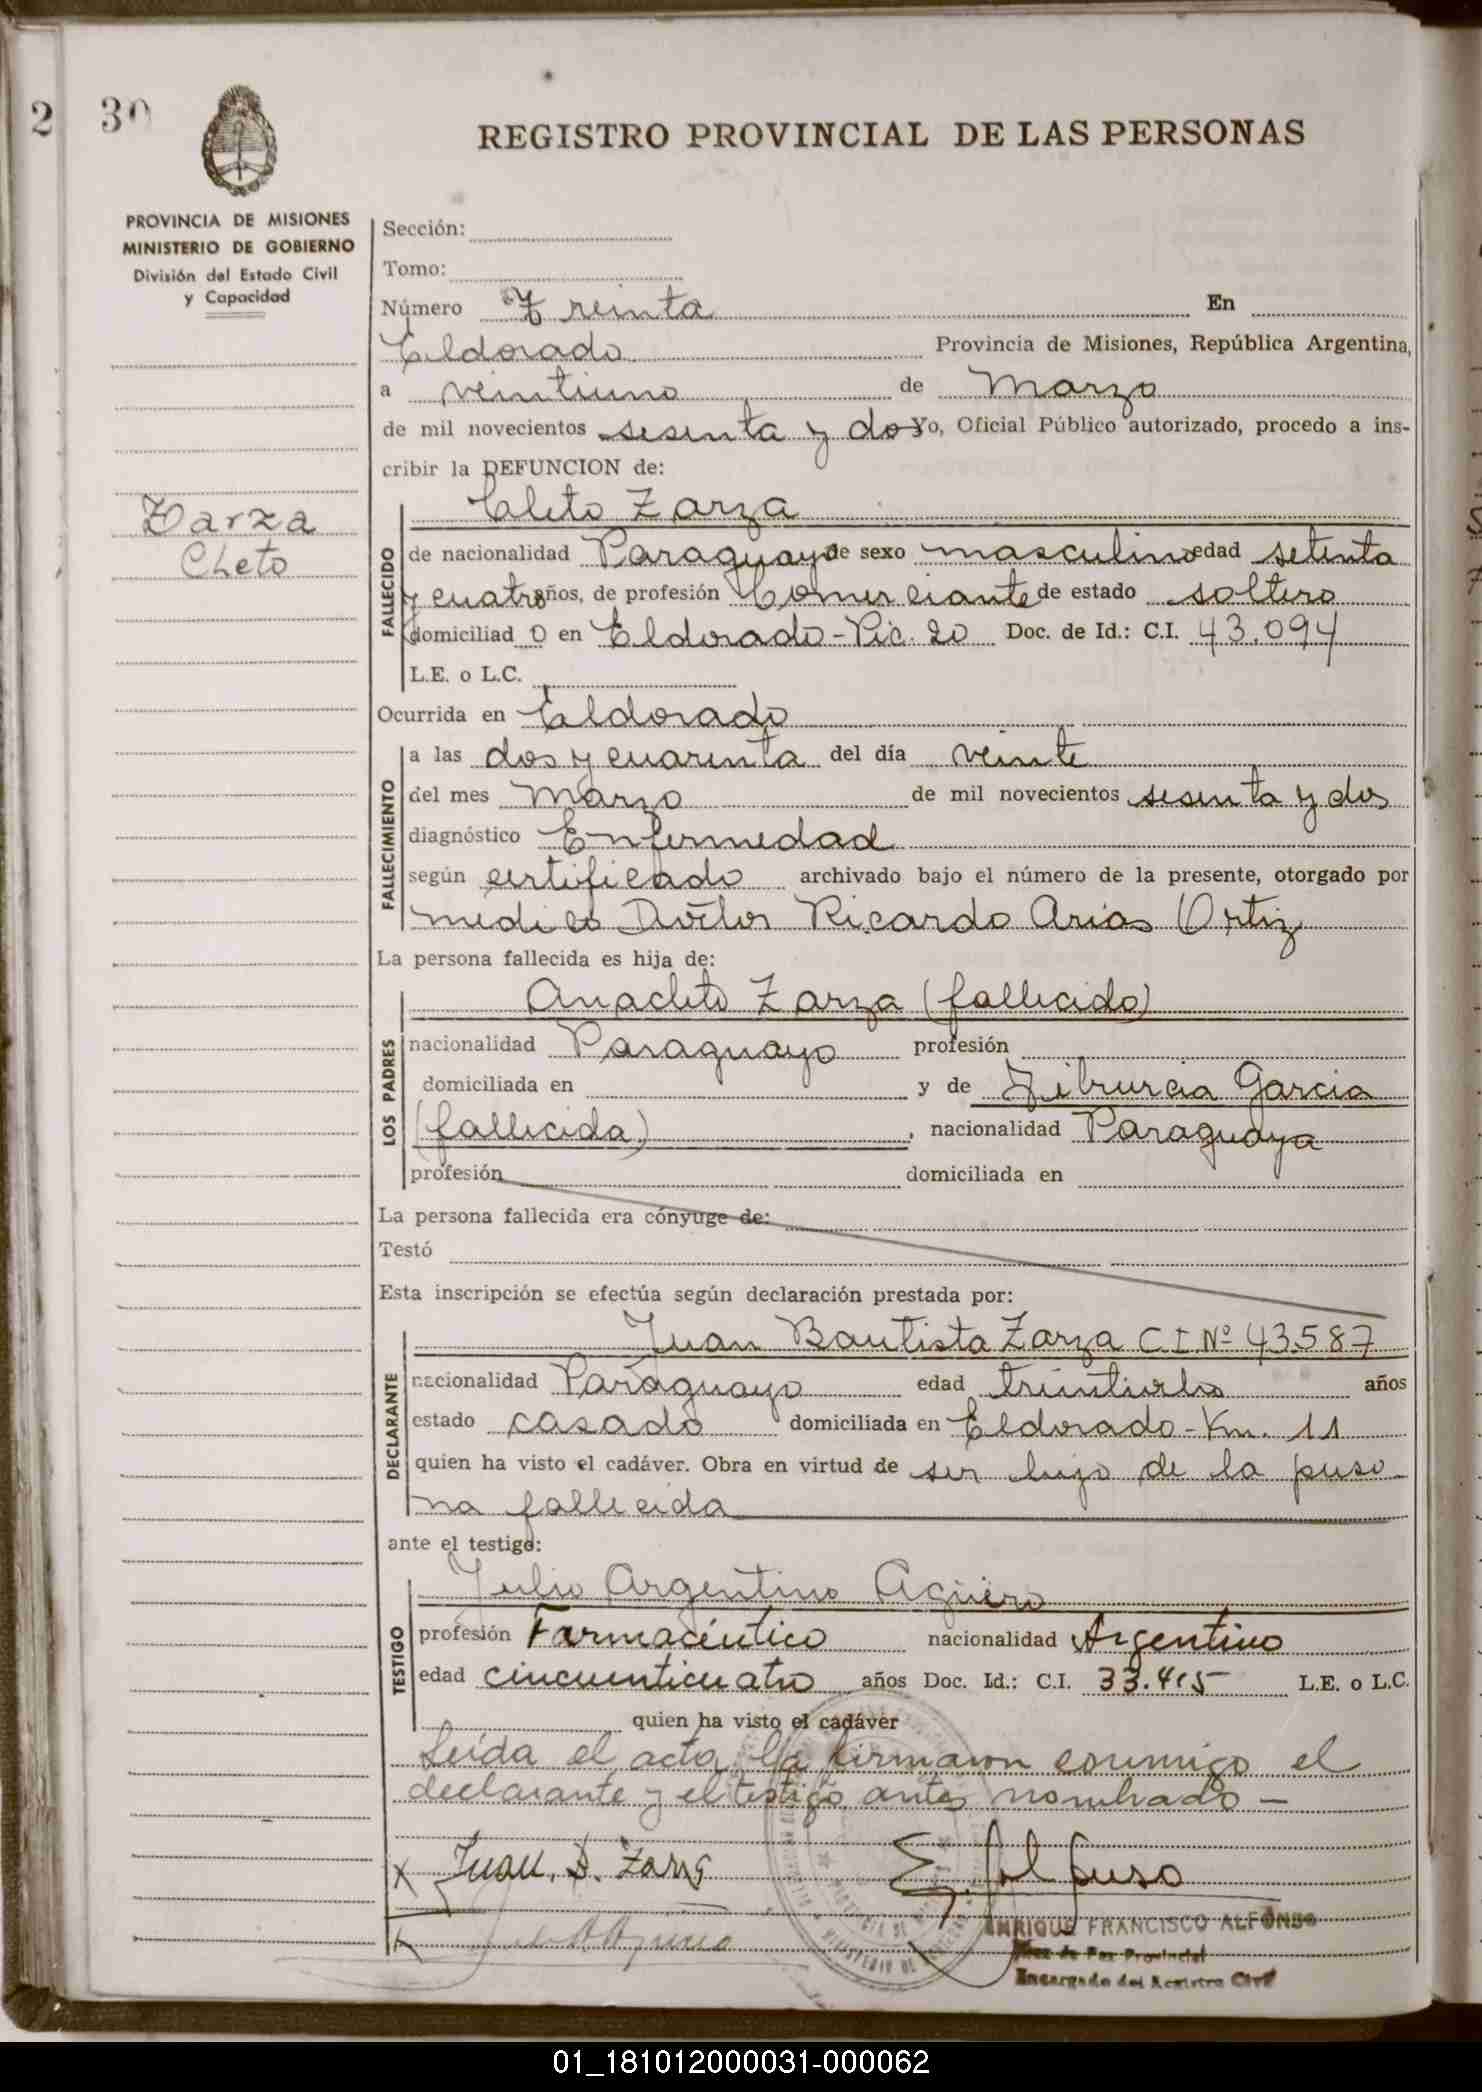 2
30
REGISTRO PROVINCIAL DE LAS PERSONAS
PROVINCIA DE MISIONES
MINISTERIO DE GOBIERNO
División del Estado Civil
y Capacidad
Zarza
Cleto
Sección:
Tomo:
Número Treinta En
Eldorado Provincia de Misiones, República Argentina,
a veintiuno de Marzo
de mil novecientos sesenta y dos Yo, Oficial Público autorizado, procedo a ins-
cribir la DEFUNCION de:
FALLECIDO
Cleto Zarza
de nacionalidad Paraguayo de sexo masculino edad setenta
y cuatro años, de profesión Comerciante de estado soltero
domiciliad o en Eldorado-Pic. 20 Doc. de Id.: C.I. 43.094
L.E. o L.C.
Ocurrida en Eldorado
FALLECIMIENTO
a las dos y cuarenta del día veinte
del mes Marzo de mil novecientos sesenta y dos
diagnóstico Enfermedad
según certificado archivado bajo el número de la presente, otorgado por
medico Doctor Ricardo Arias Ortiz
La persona fallecida es hija de:
LOS PADRES
Anacleto Zarza (fallecido)
nacionalidad Paraguayo profesión
domiciliada en y de Tiburcia Garcia
(fallecida), nacionalidad Paraguaya
profesión domiciliada en
La persona fallecida era cónyuge de:
Testó
Esta inscripción se efectúa según declaración prestada por:
DECLARANTE
Juan Bautista Zarza C.I. Nº 43.587
nacionalidad Paraguayo edad años
estado casado domiciliada en Eldorado-Km. 11
quien ha visto el cadáver. Obra en virtud de ser hijo de la perso-
na fallecida
ante el testigo:
TESTIGO
Julio Argentino Agüero
profesión Farmacéutico nacionalidad Argentino
edad cincuenticuatro años Doc. Id.: C.I. 33.415 L.E. o L.C.
quien ha visto el cadáver
Leída el acta, la firmaron conmigo el
declarante y el testigo antes nombrado -
X Juan. B. Zarza
X
ENRIQUE FRANCISCO ALFONSO
Juez de Paz Provincial
Encargado del Registro Civil
01_181012000031-000062